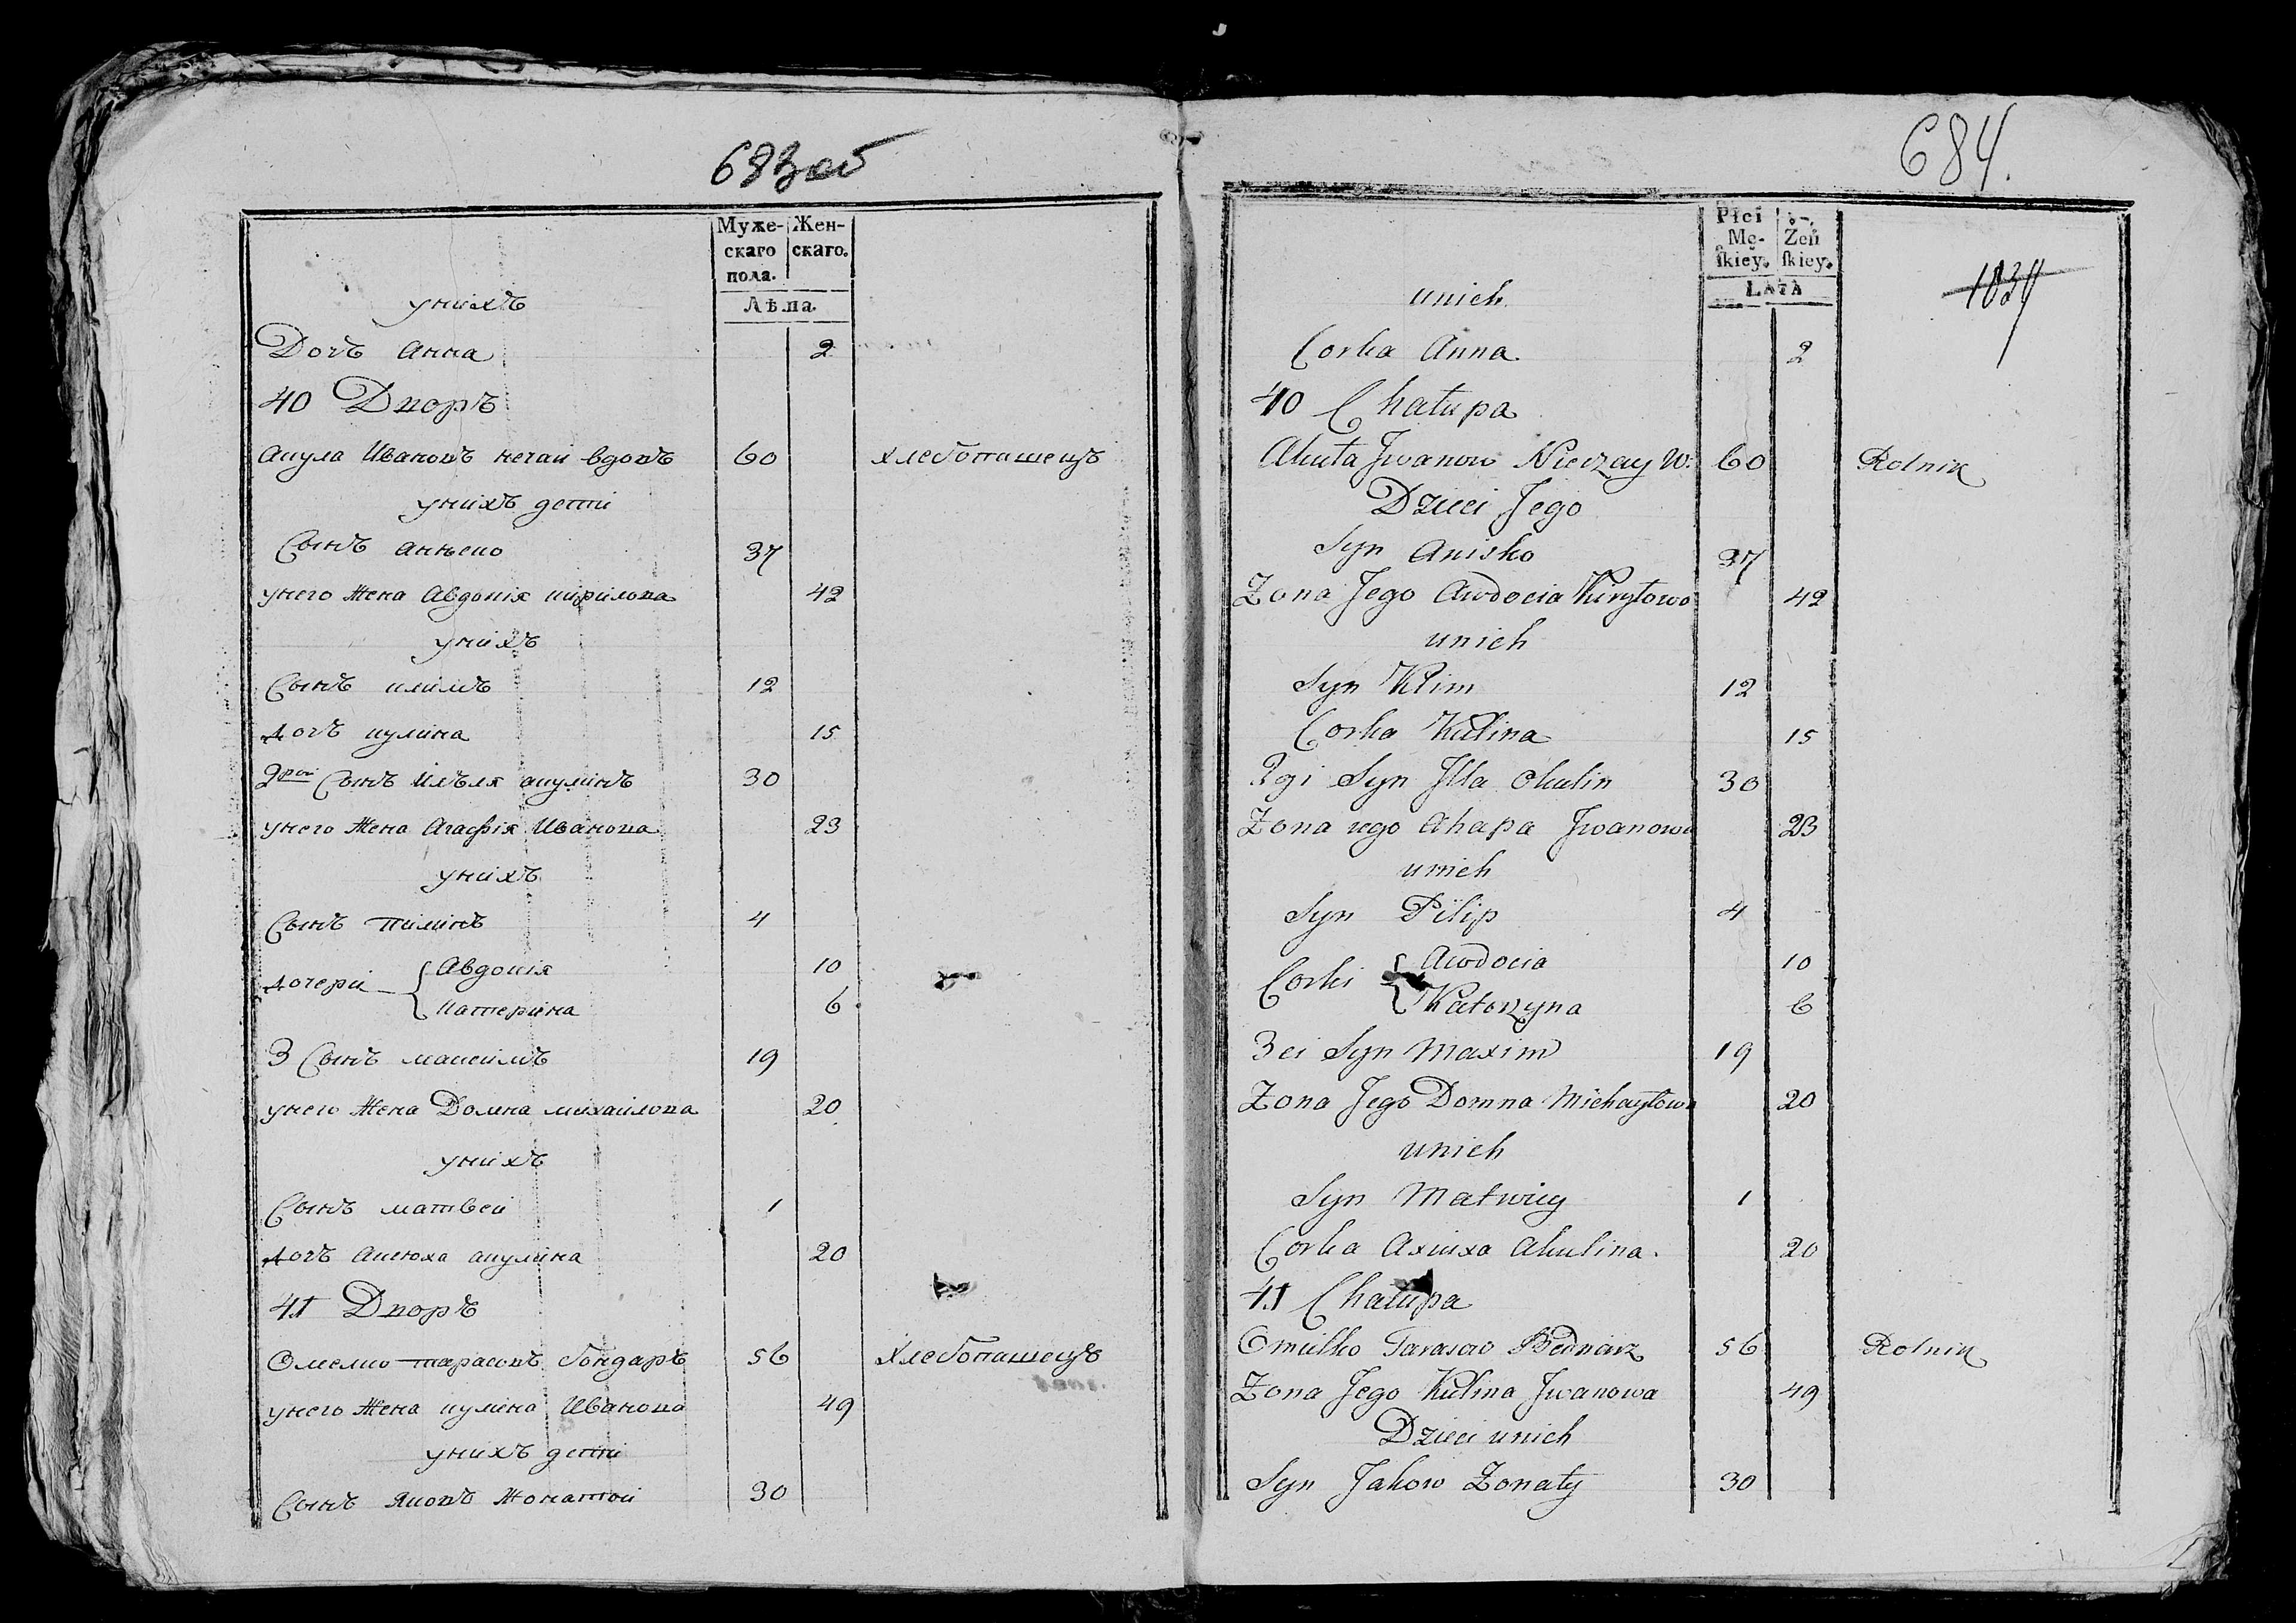 683 об
Муже- Жен-
скаго скаго.
пола.
Лѣта.
у нихъ
Дочъ Анна 2
40 Дворъ
Акула Ивановъ нечай вдовъ 60 хлебопашецъ
у нихъ дети
Сынъ
37
у него Жена Авдокія кирилова 42
у нихъ
Сынъ климъ 12
дочъ кулина 15
2рой Сынъ Илъля акулинъ 30
у него Жена Агафія Иванова 23
у нихъ
Сынъ пилипъ 4
дочери Авдокія 10
катерина 6
3 Сынъ максимъ 19
у него Жена Домна михаилова 20
у нихъ
Сынъ матвеи 1
дочъ Аксюха акулина 20
41 Дворъ
Омелко тарасовъ бондаръ 56 Хлебопашецъ
у него Жена кулина Иванова 49
у нихъ дети
Сынъ Яковъ Жонатои 30
684.
Płci
Mę- Żeń
skiey. skiey.
LATA
1034
u nich
Corka Anna 2
40 Chałupa
Akuła Jwanow Nieczay W. 60 Rolnik
Dzieci Jego
Syn Anisko 37
Zona Jego Awdocia Kiryłowa 42
u nich
Syn Klim 12
Corka Kulina 15
2gi Syn Jlla Okulin 30
Zona iego Ahapa Jwanowa 23
u nich
Syn Pilip 4
Corki Awdocia 10
Katerzyna 6
3ei Syn Maxim 19
Zona Jego Domna Michayłowa 20
u nich
Syn Matwiey 1
Corka Axiuxa Akulina. 20
41 Chałupa
Omielko Tarasow Bednarz 56 Rolnik
Zona Jego Kulina Jwanowa 49
Dzieci u nich
Syn Jakow Zonaty 30